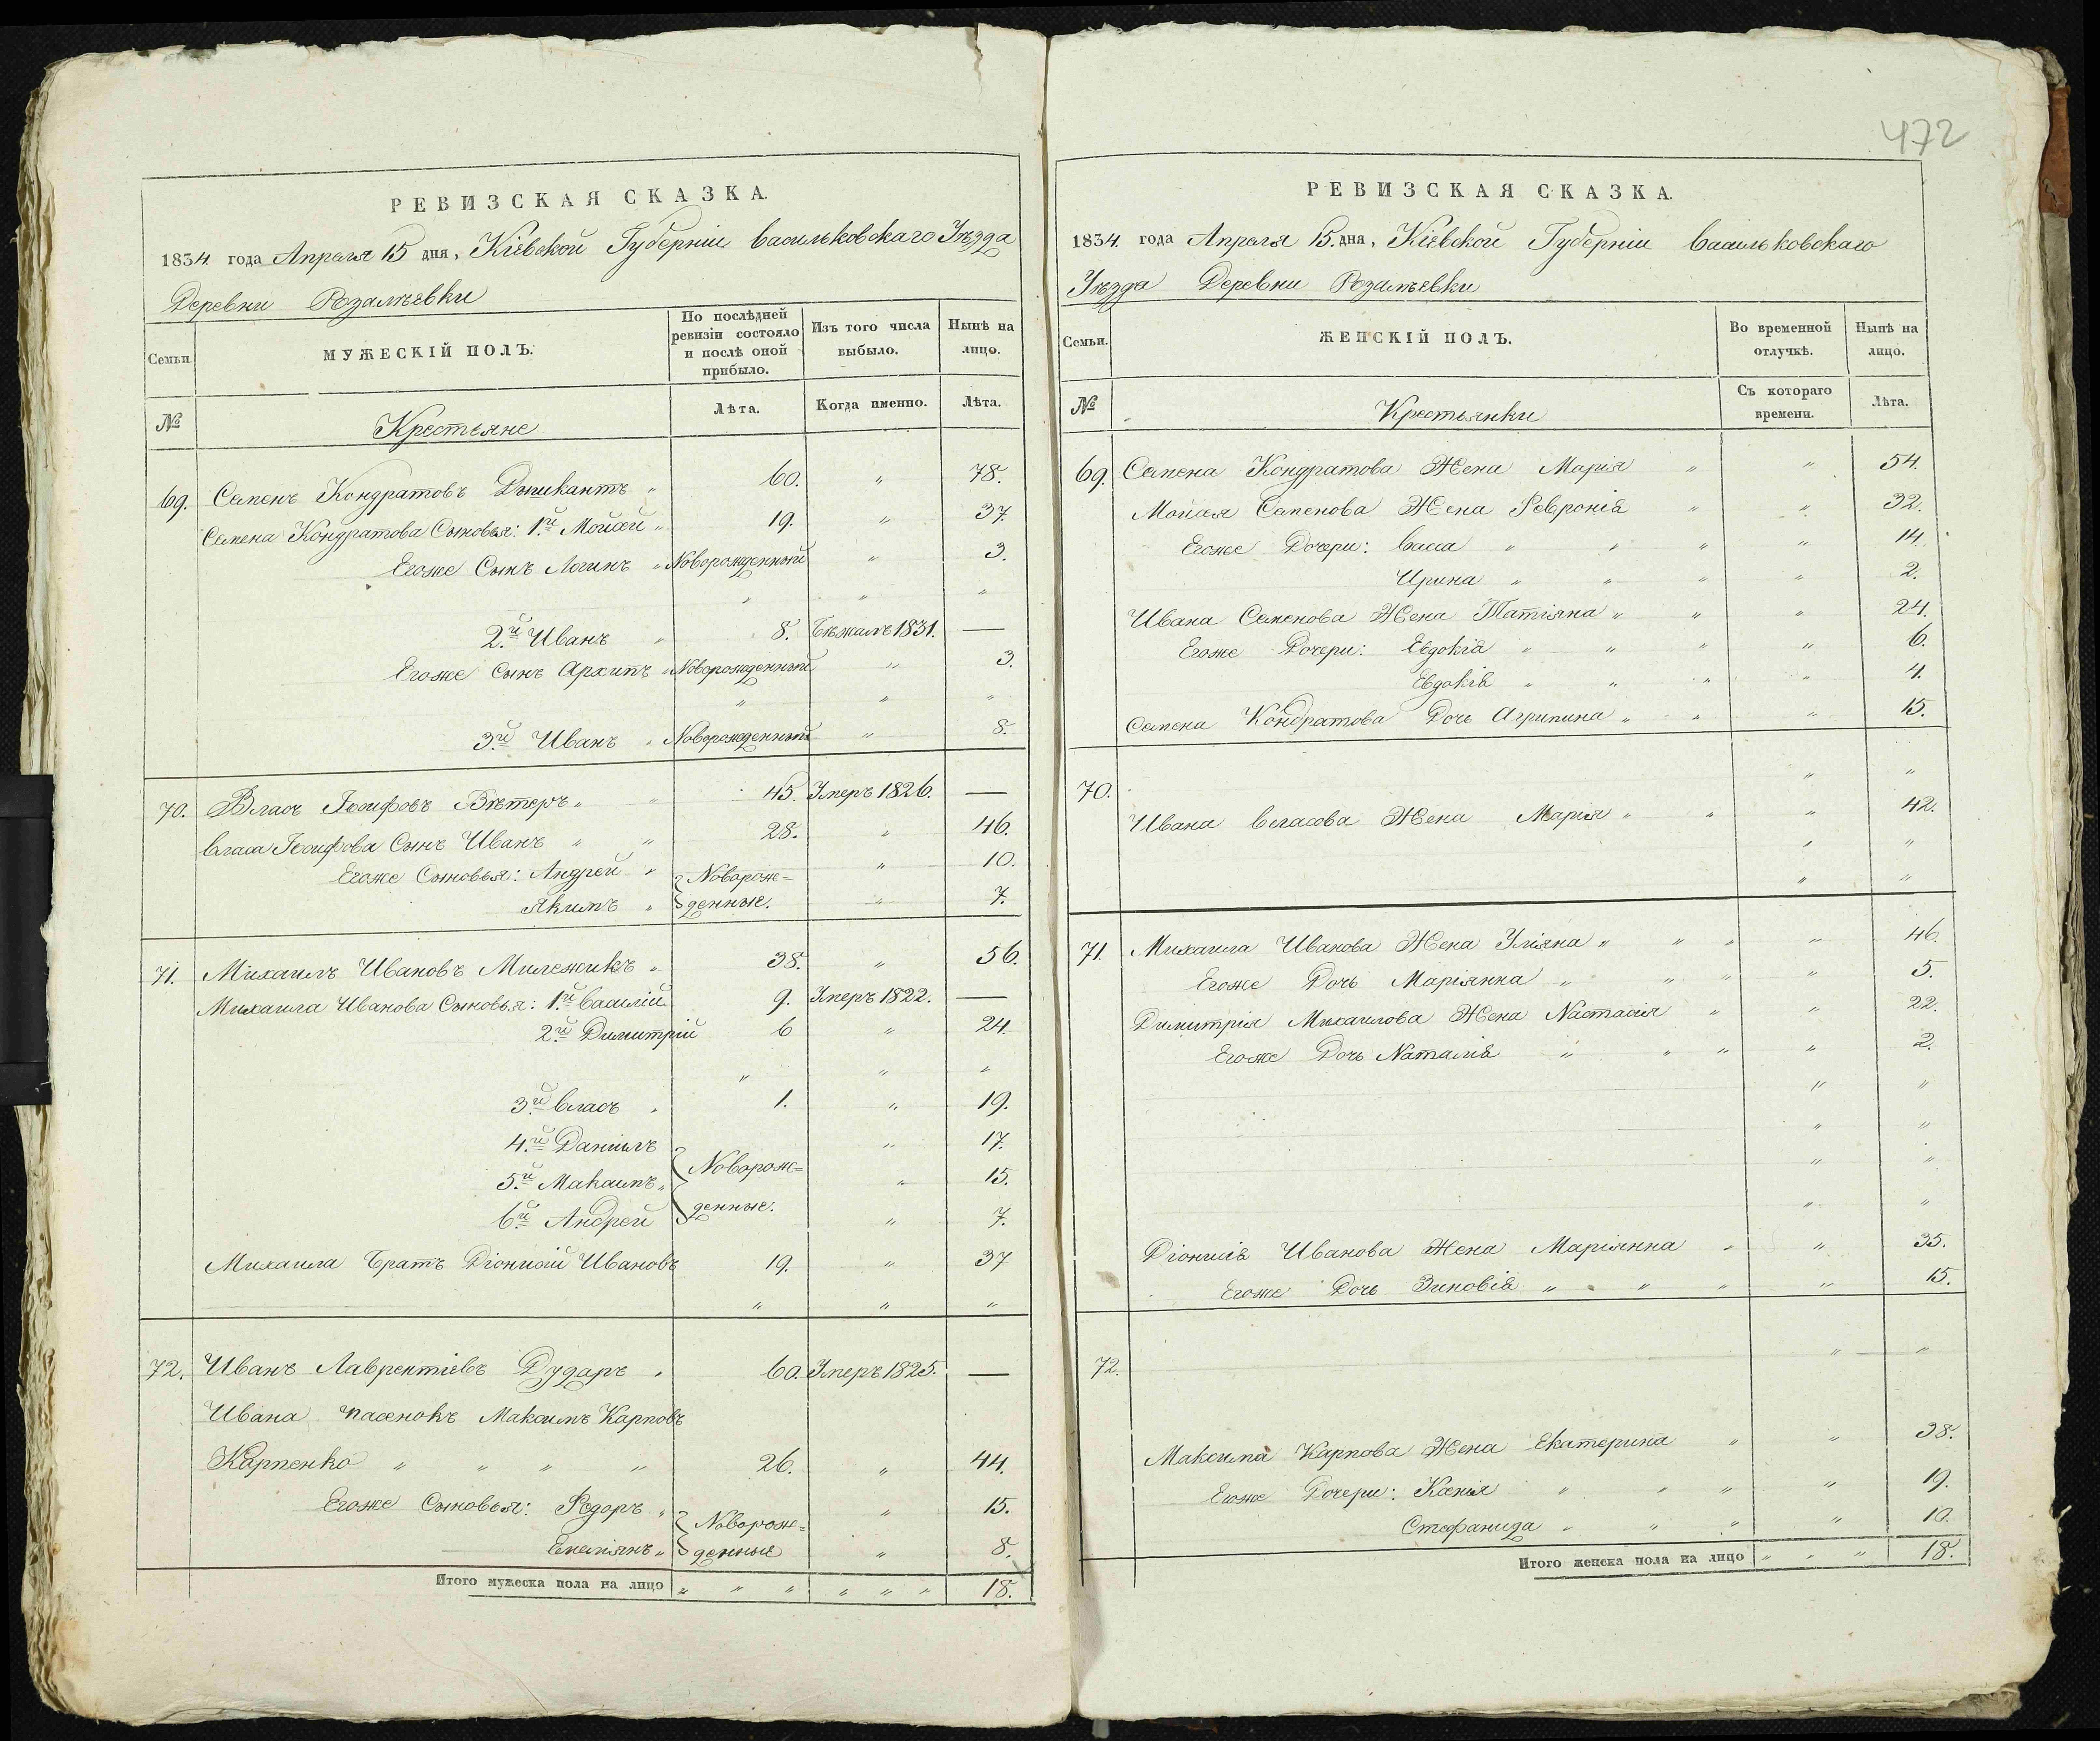 472
РЕВИЗСКАЯ СКАЗКА.
1834 года Апреля 15 дня, Кіевской Губерніи Васильковскаго Уѣзда
Деревни
Семьи.
МУЖЕСКІЙ ПОЛЪ.
По послѣдней ревизіи состояло и послѣ оной прибыло.
Изъ того числа выбыло.
Нынѣ на лицо.
№
Крестьяне
Лѣта.
Когда именно.
Лѣта.
69. Семенъ Кондратовъ 60. " 78.
Семена Кондратова Сыновья: 1й Мойсей " 19. " 37.
Егоже Сынъ Логинъ " Новорожденный " 3.
" " "
2й Иванъ " 8. Бѣжалъ 1831. —
Егоже Сынъ Архипъ " Новорожденный " 3.
" " "
3й Иванъ " Новорожденный " 8.
70. Власъ Іосифовъ Вѣтеръ " " 45. Умеръ 1826. —
Власа Іосифова Сынъ Иванъ " " 28. " 46.
Егоже Сыновья: Андрей " Новорож= " 10.
Якимъ " денные. " 7.
71. Михаилъ Ивановъ " 38. " 56.
Михаила Иванова Сыновья: 1й Василій 9. Умеръ 1822. —
2й Димитрій 6 " 24.
" " "
3й Власъ " 1. " 19.
4й Даніилъ " 17.
5й Максимъ " Новорож= " 15.
6й Андрей денные. " 7.
Михаила Братъ Діонисій Ивановъ 19. " 37
" " "
72. Иванъ Лаврентіевъ Дударъ " 60. Умеръ 1825. —
Ивана пасенокъ Максимъ Карповъ
Карпенко " " " " 26. " 44.
Егоже Сыновья: Ѳедоръ " Новорож= " 15.
Емелянъ " денные " 8.
Итого мужеска пола на лицо " " " " " " 18.
РЕВИЗСКАЯ СКАЗКА.
1834 года Апреля 15. дня, Кіевской Губерніи Васильковскаго
Уѣзда Деревни
Семьи.
ЖЕНСКІЙ ПОЛЪ.
Во временной отлучкѣ.
Нынѣ на лицо.
№
Крестьянки
Съ котораго времени.
Лѣта.
69. Семена Кондратова Жена Марія " " 54.
Мойсея Семенова Жена Февронія " " 32.
Егоже Дочери: Васса " " " " 14.
Ирина " " " " 2.
Ивана Семенова Жена Татіяна " " " 24.
Егоже Дочери: Евдокія " " " " 6.
Евдокія " " " " 4.
Семена Кондратова Дочь Агрипина " " " 15.
70. " "
Ивана Власова Жена Марія " " " 42.
" "
" "
71. Михаила Иванова Жена Уліяна " " " " 46.
Егоже Дочь Маріянна " " " " 5.
Димитрія Михаилова Жена Настасія " " 22.
Егоже Дочь Наталія " " " " 2.
" "
" "
" "
" "
Діонисія Иванова Жена Маріянна " " 35.
Егоже Дочь Зиновія " " " " 15.
72. " "
Максима Карпова Жена Екатерина " " 38.
Егоже Дочери: Ксенія " " " " 19.
Стефанида " " " " 10.
Итого женска пола на лицо " " " 18.